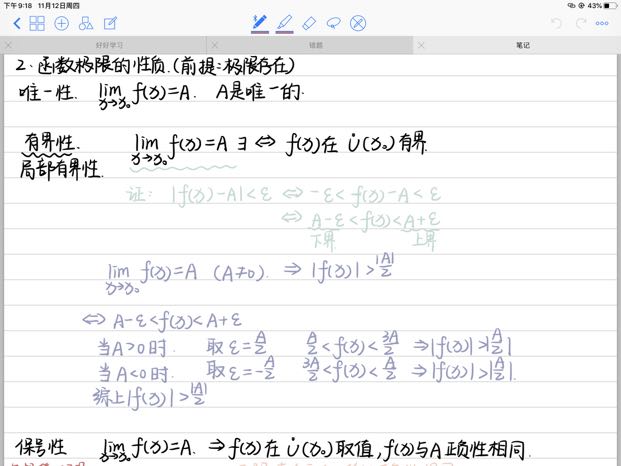 下午9:18 11月12日周四 43%
好好学习 错题 笔记
2、函数极限的性质.(前提:极限存在)
唯一性. lim f(x)=A. A是唯一的.
x→x₀
有界性. lim f(x)=A ∃ ⇔ f(x)在 U̇(x₀)有界.
x→x₀
局部有界性.
证: |f(x)-A|<ε ⇔ -ε<f(x)-A<ε
⇔ A-ε<f(x)<A+ε
下界 上界
lim f(x)=A (A≠0). ⇒ |f(x)|>|A|/2
x→x₀
⇔ A-ε<f(x)<A+ε
当A>0时. 取ε=A/2 A/2<f(x)<3A/2 ⇒|f(x)|>|A/2|
当A<0时. 取ε=-A/2 3A/2<f(x)<A/2 ⇒|f(x)|>|A/2|.
综上|f(x)|>|A|/2
保号性 lim f(x)=A. ⇒f(x)在 U̇(x₀)取值,f(x)与A正负性相同.
x→x₀